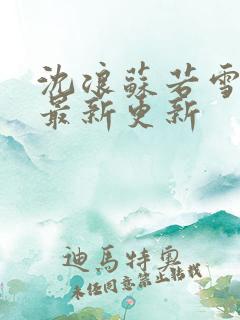 沈浪蘇若雪
最新更新
迪馬特奧
未经同意禁止转载